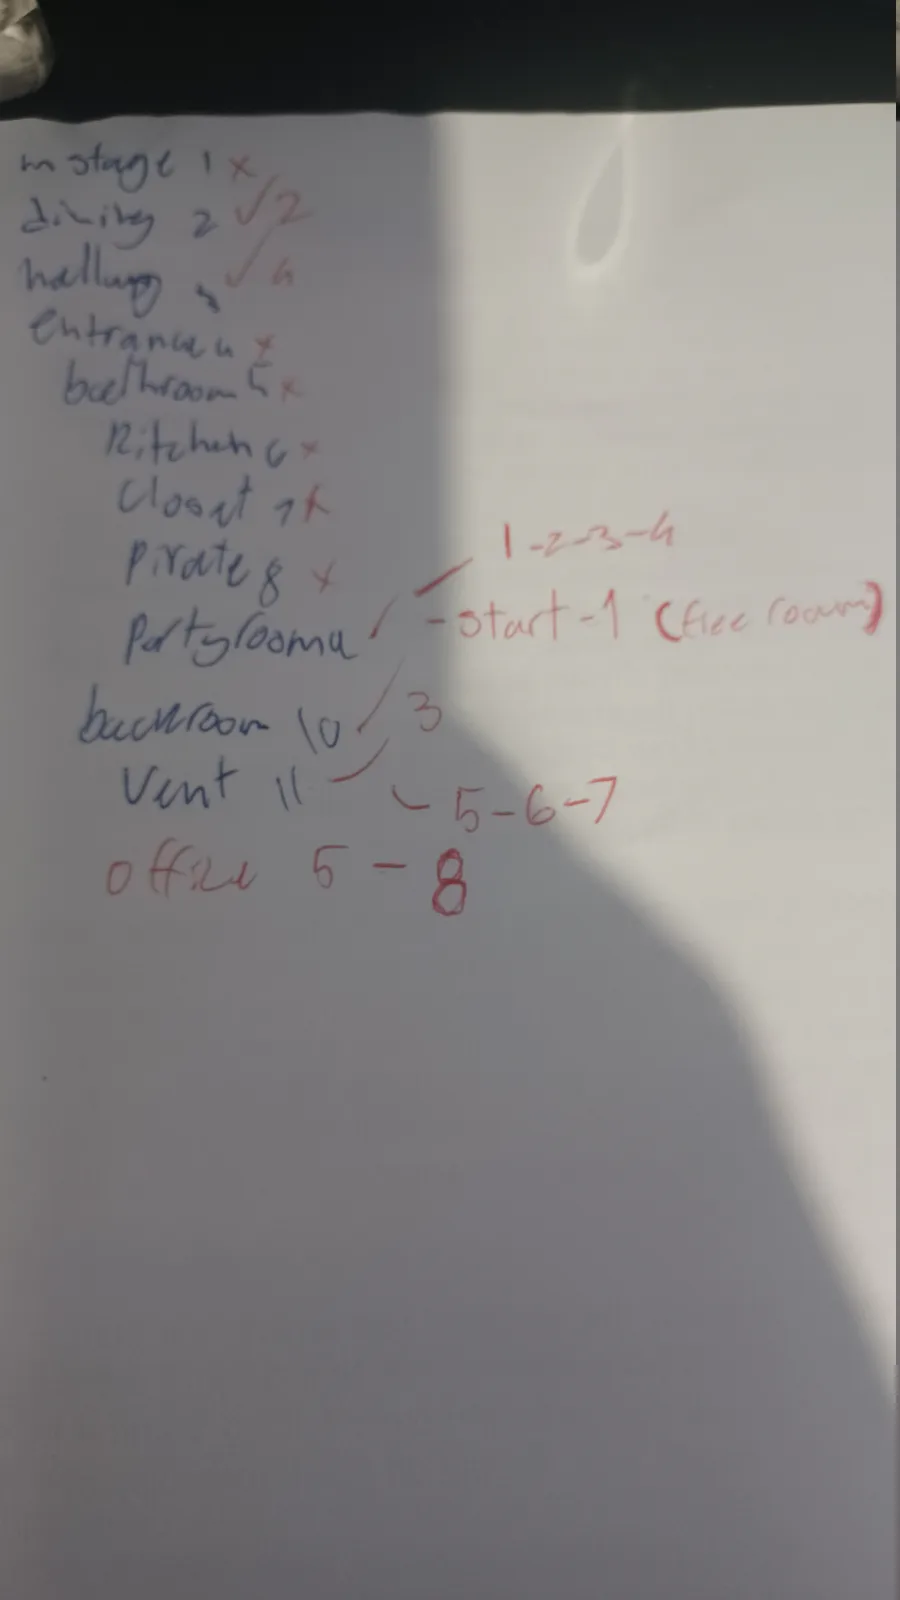 m stage 1 x
dining 2 ✓ 2
hallway 3 ✓ 4
Entrance 4 x
bathroom 5 x
Kitchen 6 x
Closet 7 x
Pirate 8 x
1-2-3-4
Partyroom
-start-1 (free room)
backroom 10 3
Vent 11
5-6-7
office 5 - 8